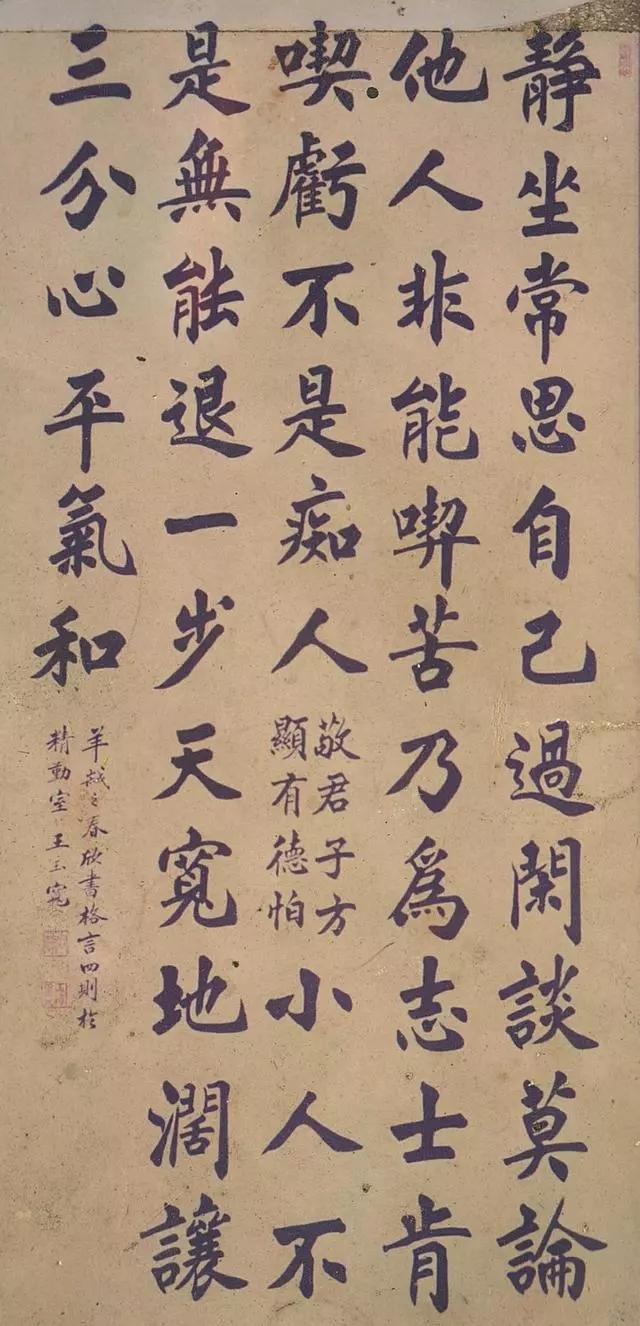 静坐常思自己過閑談莫論
他人非能喫苦乃爲志士肯
喫虧不是痴人
敬君子方
顯有德怕
小人不
是無能退一步天寬地濶讓
三分心平氣和
之春欣書格言四則於
室王